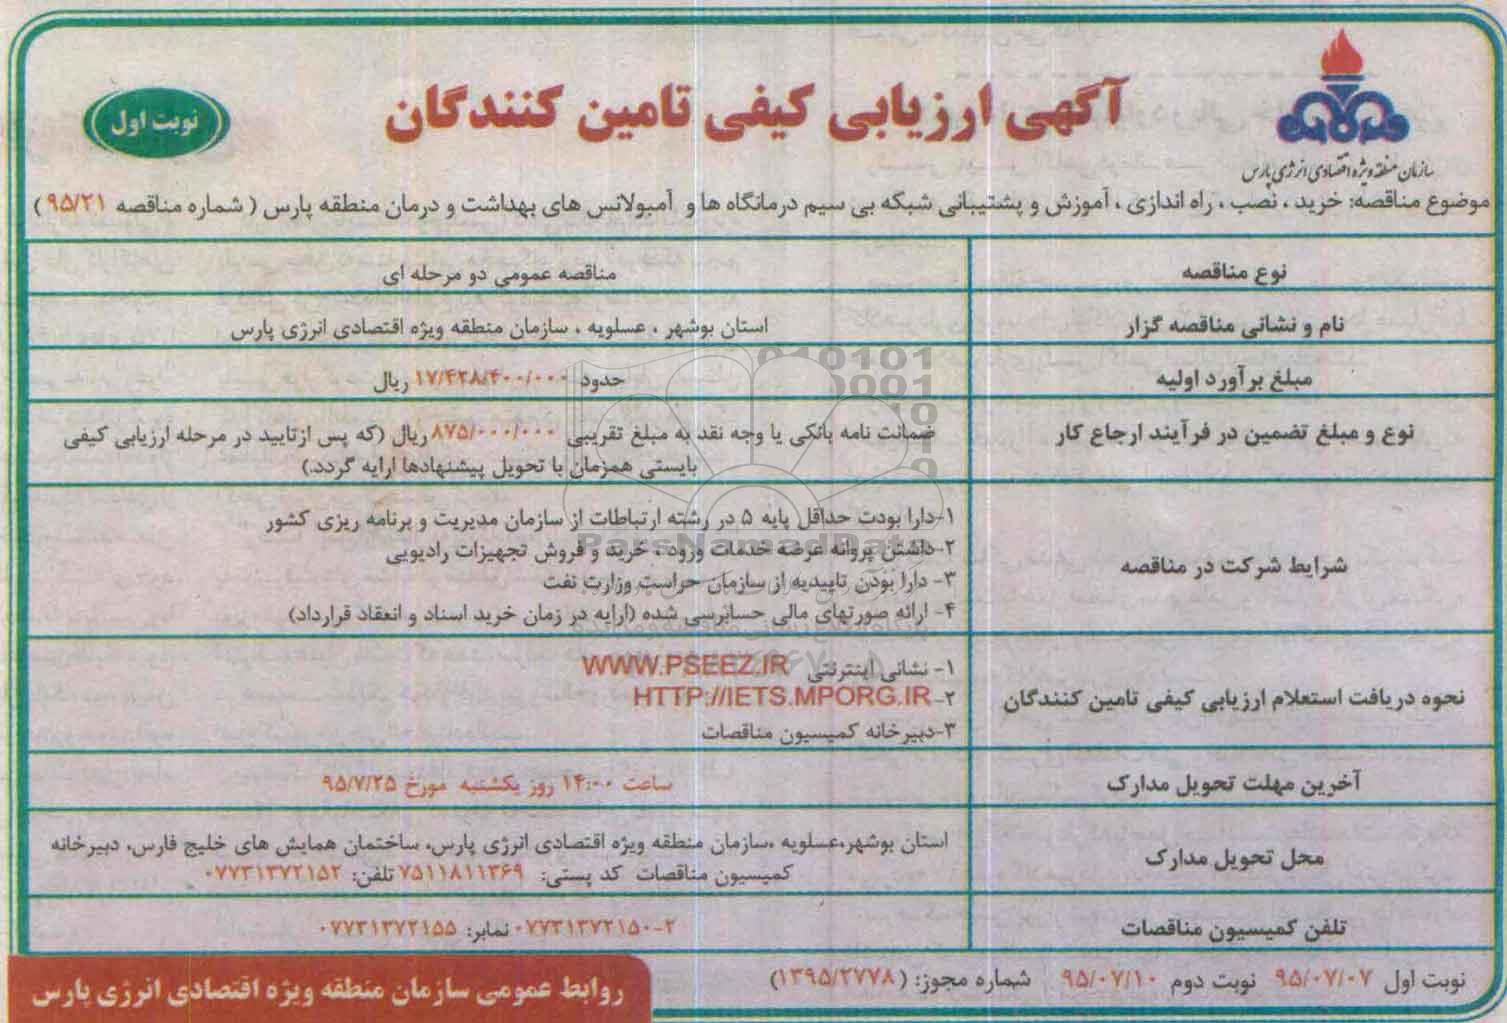 سازمان منطقه ویژه اقتصادی انرژی پارس
آگهی ارزیابی کیفی تامین کنندگان
نوبت اول
موضوع مناقصه: خرید ، نصب ، راه اندازی ، آموزش و پشتیبانی شبکه بی سیم درمانگاه ها و آمبولانس های بهداشت و درمان منطقه پارس ( شماره مناقصه ۹۵/۲۱ )
نوع مناقصه
مناقصه عمومی دو مرحله ای
نام و نشانی مناقصه گزار
استان بوشهر ، عسلویه ، سازمان منطقه ویژه اقتصادی انرژی پارس
مبلغ برآورد اولیه
حدود ۱۷/۴۲۸/۴۰۰/۰۰۰ ریال
نوع و مبلغ تضمین در فرآیند ارجاع کار
ضمانت نامه بانکی یا وجه نقد به مبلغ تقریبی ۸۷۵/۰۰۰/۰۰۰ ریال (که پس ازتایید در مرحله ارزیابی کیفی
بایستی همزمان با تحویل پیشنهادها ارایه گردد.)
شرایط شرکت در مناقصه
۱-دارا بودت حداقل پایه ۵ در رشته ارتباطات از سازمان مدیریت و برنامه ریزی کشور
۲-داشتن پروانه عرضه خدمات ورود ، خرید و فروش تجهیزات رادیویی
۳- دارا بودن تاییدیه از سازمان حراست وزارت نفت
۴- ارائه صورتهای مالی حسابرسی شده (ارایه در زمان خرید اسناد و انعقاد قرارداد)
نحوه دریافت استعلام ارزیابی کیفی تامین کنندگان
۱- نشانی اینترنتی WWW.PSEEZ.IR
۲- HTTP://IETS.MPORG.IR
۳-دبیرخانه کمیسیون مناقصات
آخرین مهلت تحویل مدارک
ساعت ۱۴:۰۰ روز یکشنبه مورخ ۹۵/۷/۲۵
محل تحویل مدارک
استان بوشهر،عسلویه ،سازمان منطقه ویژه اقتصادی انرژی پارس، ساختمان همایش های خلیج فارس، دبیرخانه
کمیسیون مناقصات کد پستی: ۷۵۱۱۸۱۱۳۶۹ تلفن: ۰۷۷۳۱۳۷۲۱۵۲
تلفن کمیسیون مناقصات
۰۷۷۳۱۳۷۲۱۵۰-۲ نمابر: ۰۷۷۳۱۳۷۲۱۵۵
نوبت اول ۹۵/۰۷/۰۷ نوبت دوم ۹۵/۰۷/۱۰ شماره مجوز: ( ۱۳۹۵/۲۷۷۸)
روابط عمومی سازمان منطقه ویژه اقتصادی انرژی پارس
ParsNamadData